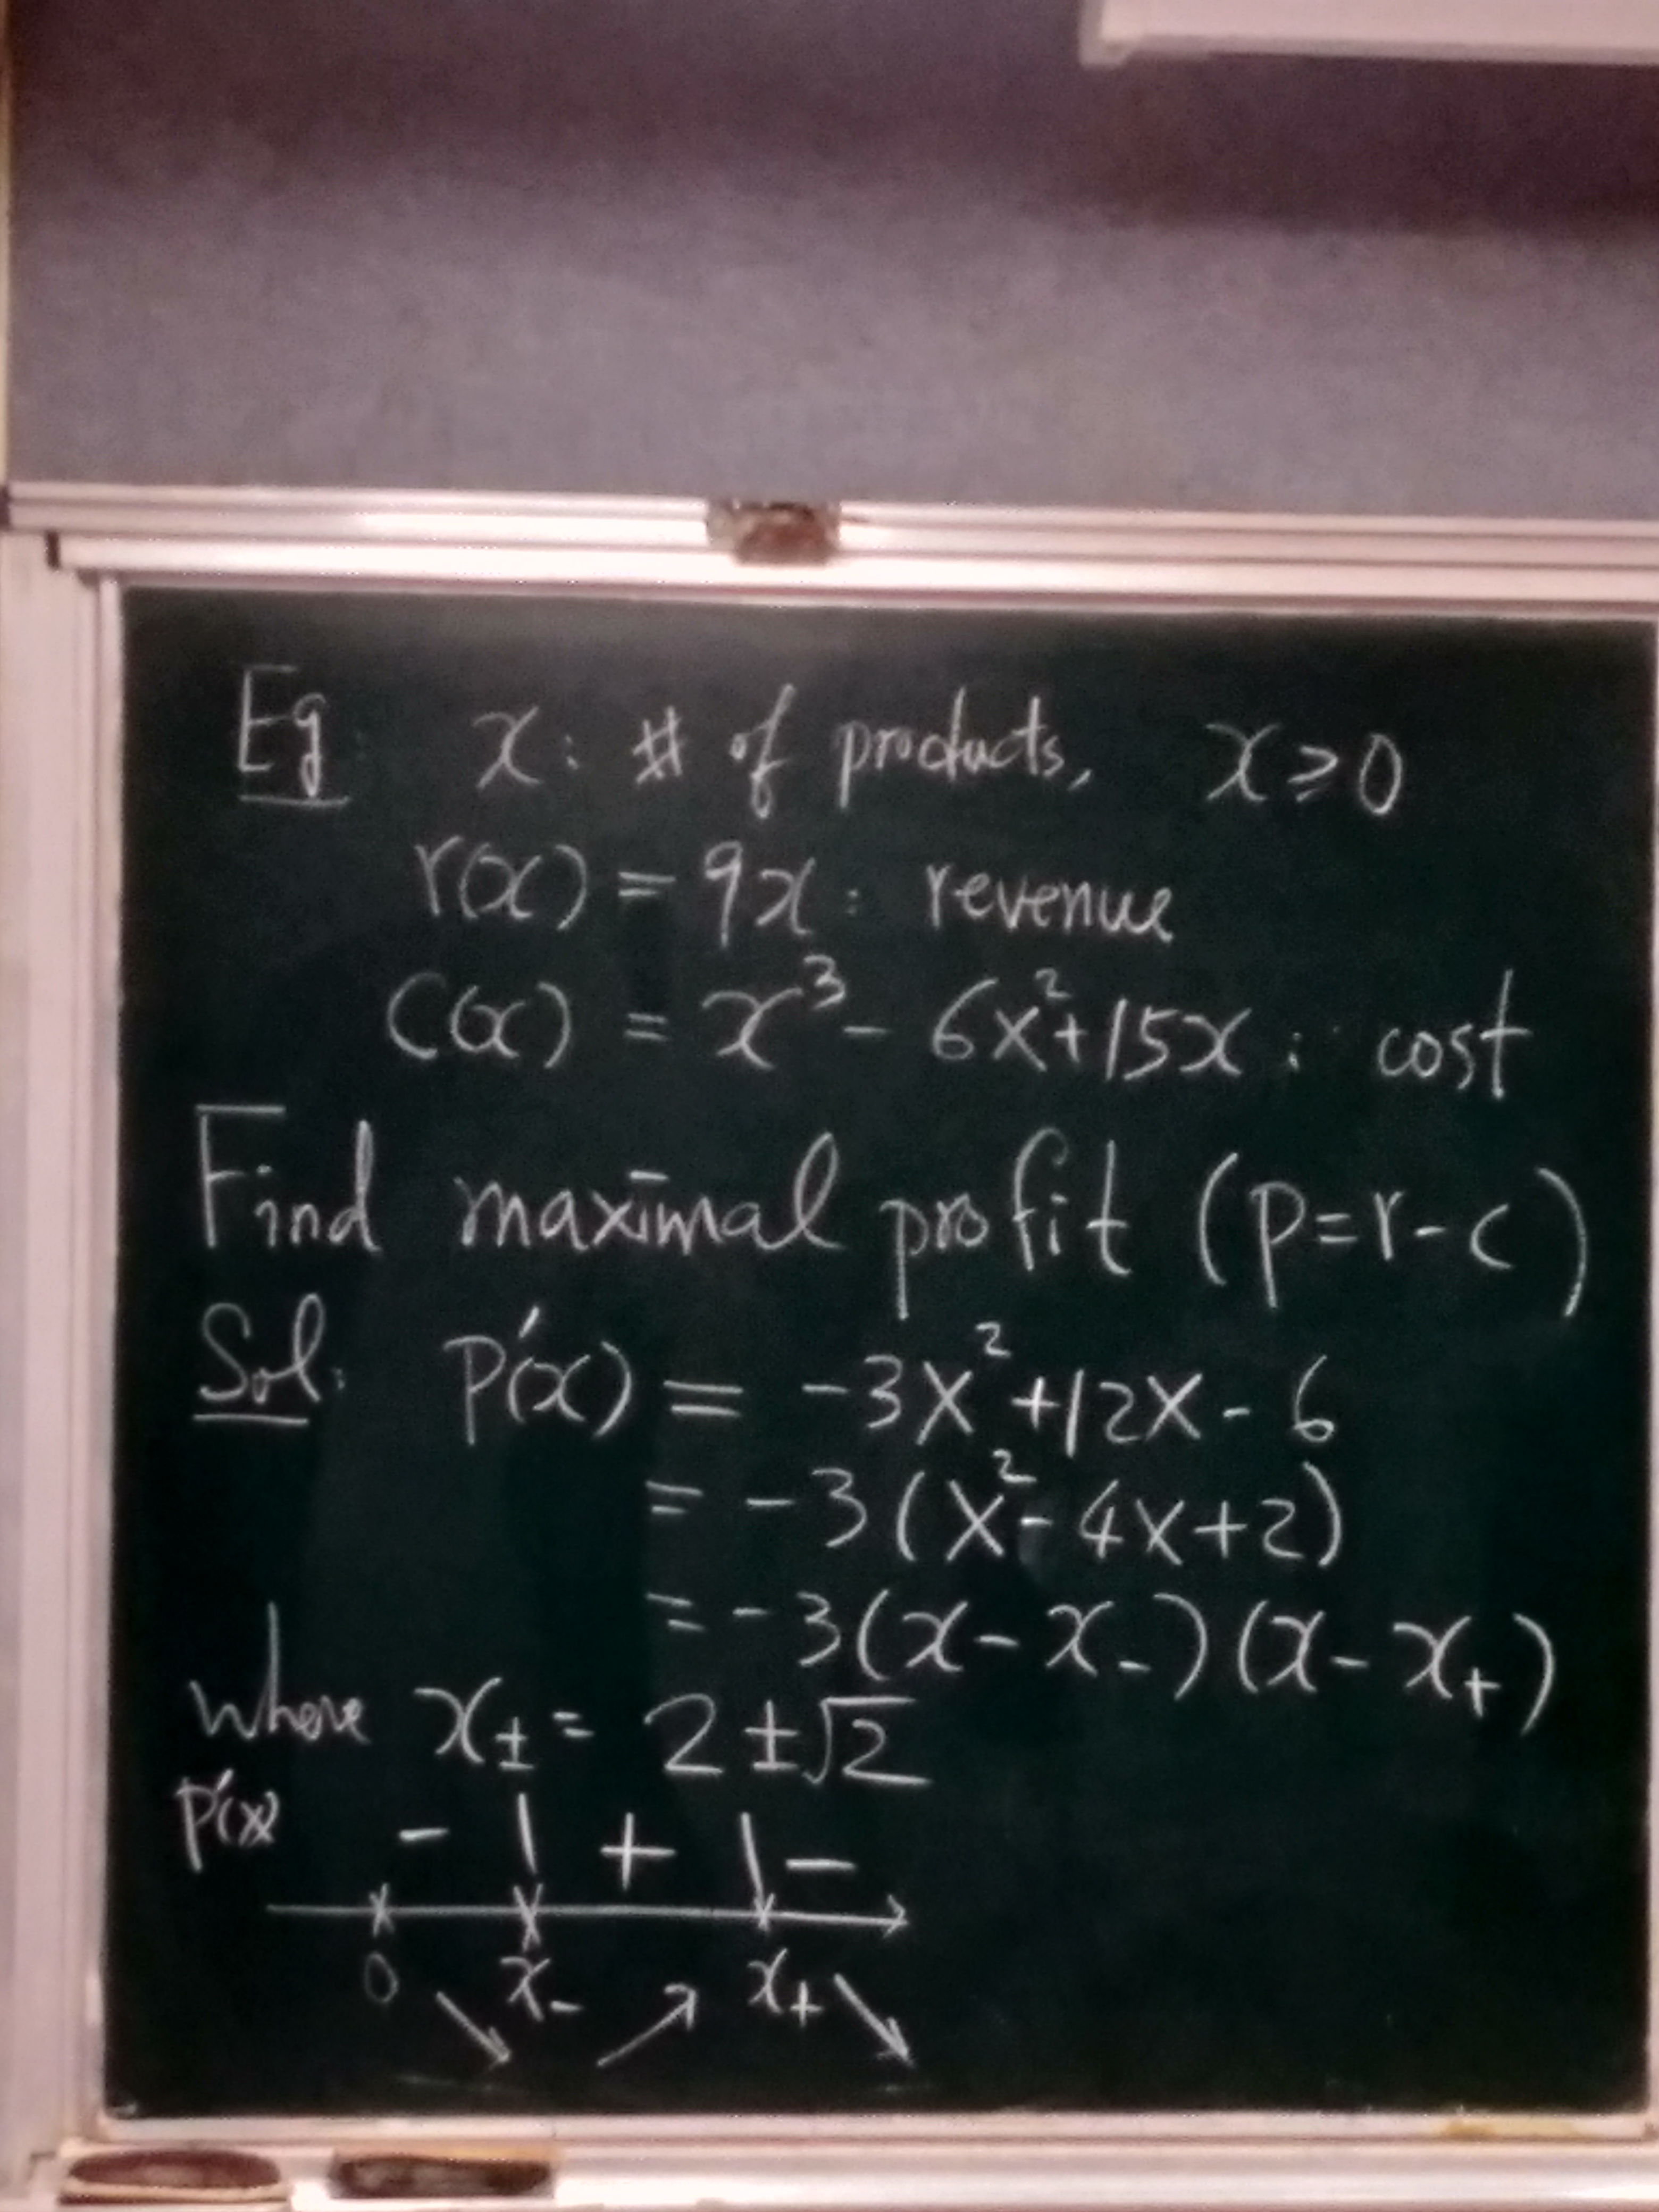 Eg: x: # of products, x ≥ 0
r(x) = 9x: revenue
c(x) = x³ - 6x² + 15x: cost
Find maximal profit (p=r-c)
Sol: p'(x) = -3x² + 12x - 6
= -3(x² - 4x + 2)
= -3(x - x₋)(x - x₊)
where x± = 2 ± √2
p'(x) - | + | -
0 ↘ x₋ ↗ x₊ ↘